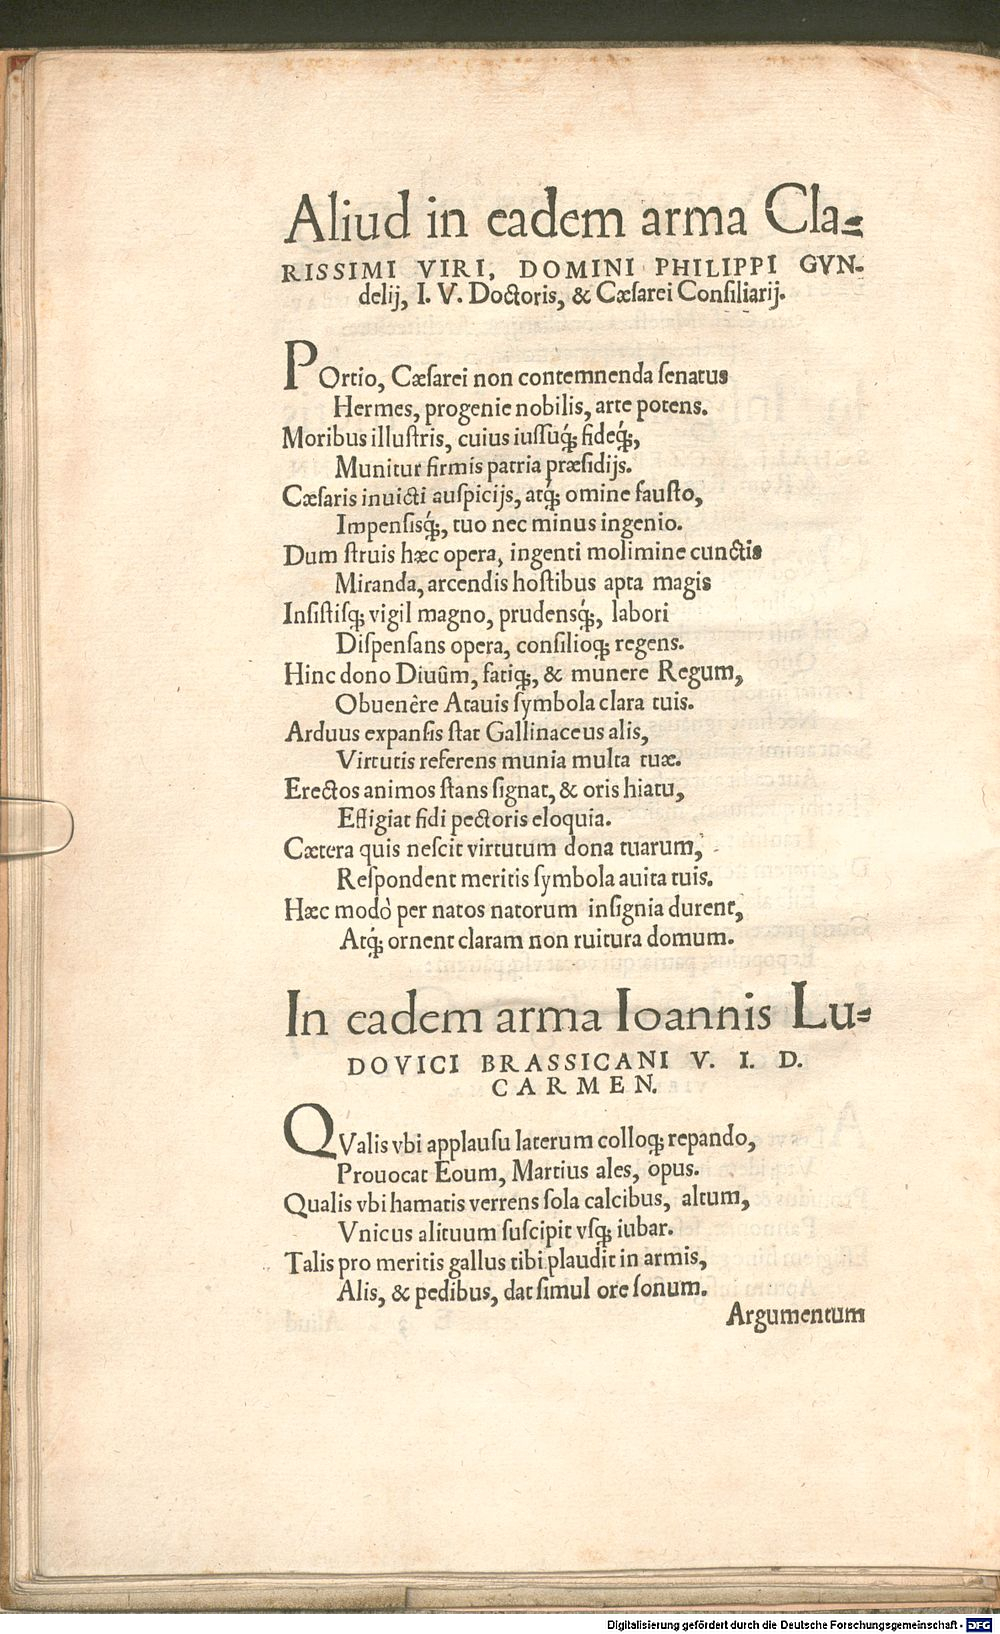 Aliud in eadem arma Cla-
RISSIMI VIRI, DOMINI PHILIPPI GVN-
delij, I. V. Doctoris, & Cæsarei Consiliarij.
POrtio, Cæsarei non contemnenda senatus
Hermes, progenie nobilis, arte potens.
Moribus illustris, cuius iussuq́; fideq́;,
Munitur firmis patria præsidijs.
Cæsaris inuicti auspicijs, atq́; omine fausto,
Impensisq́;, tuo nec minus ingenio.
Dum struis hæc opera, ingenti molimine cunctis
Miranda, arcendis hostibus apta magis
Insistisq; vigil magno, prudensq́;, labori
Dispensans opera, consilioq; regens.
Hinc dono Diuûm, fatiq;, & munere Regum,
Obuenêre Atauis symbola clara tuis.
Arduus expansis stat Gallinaceus alis,
Virtutis referens munia multa tuæ.
Erectos animos stans signat, & oris hiatu,
Effigiat fidi pectoris eloquia.
Cætera quis nescit virtutum dona tuarum,
Respondent meritis symbola auita tuis.
Hæc modò per natos natorum insignia durent,
Atq́; ornent claram non ruitura domum.
In eadem arma Ioannis Lu-
DOVICI BRASSICANI V. I. D.
CARMEN.
QValis vbi applausu laterum colloq; repando,
Prouocat Eoum, Martius ales, opus.
Qualis vbi hamatis verrens sola calcibus, altum,
Vnicus alituum suscipit vsq; iubar.
Talis pro meritis gallus tibi plaudit in armis,
Alis, & pedibus, dat simul ore sonum.
Argumentum
Digitalisierung gefördert durch die Deutsche Forschungsgemeinschaft - DFG